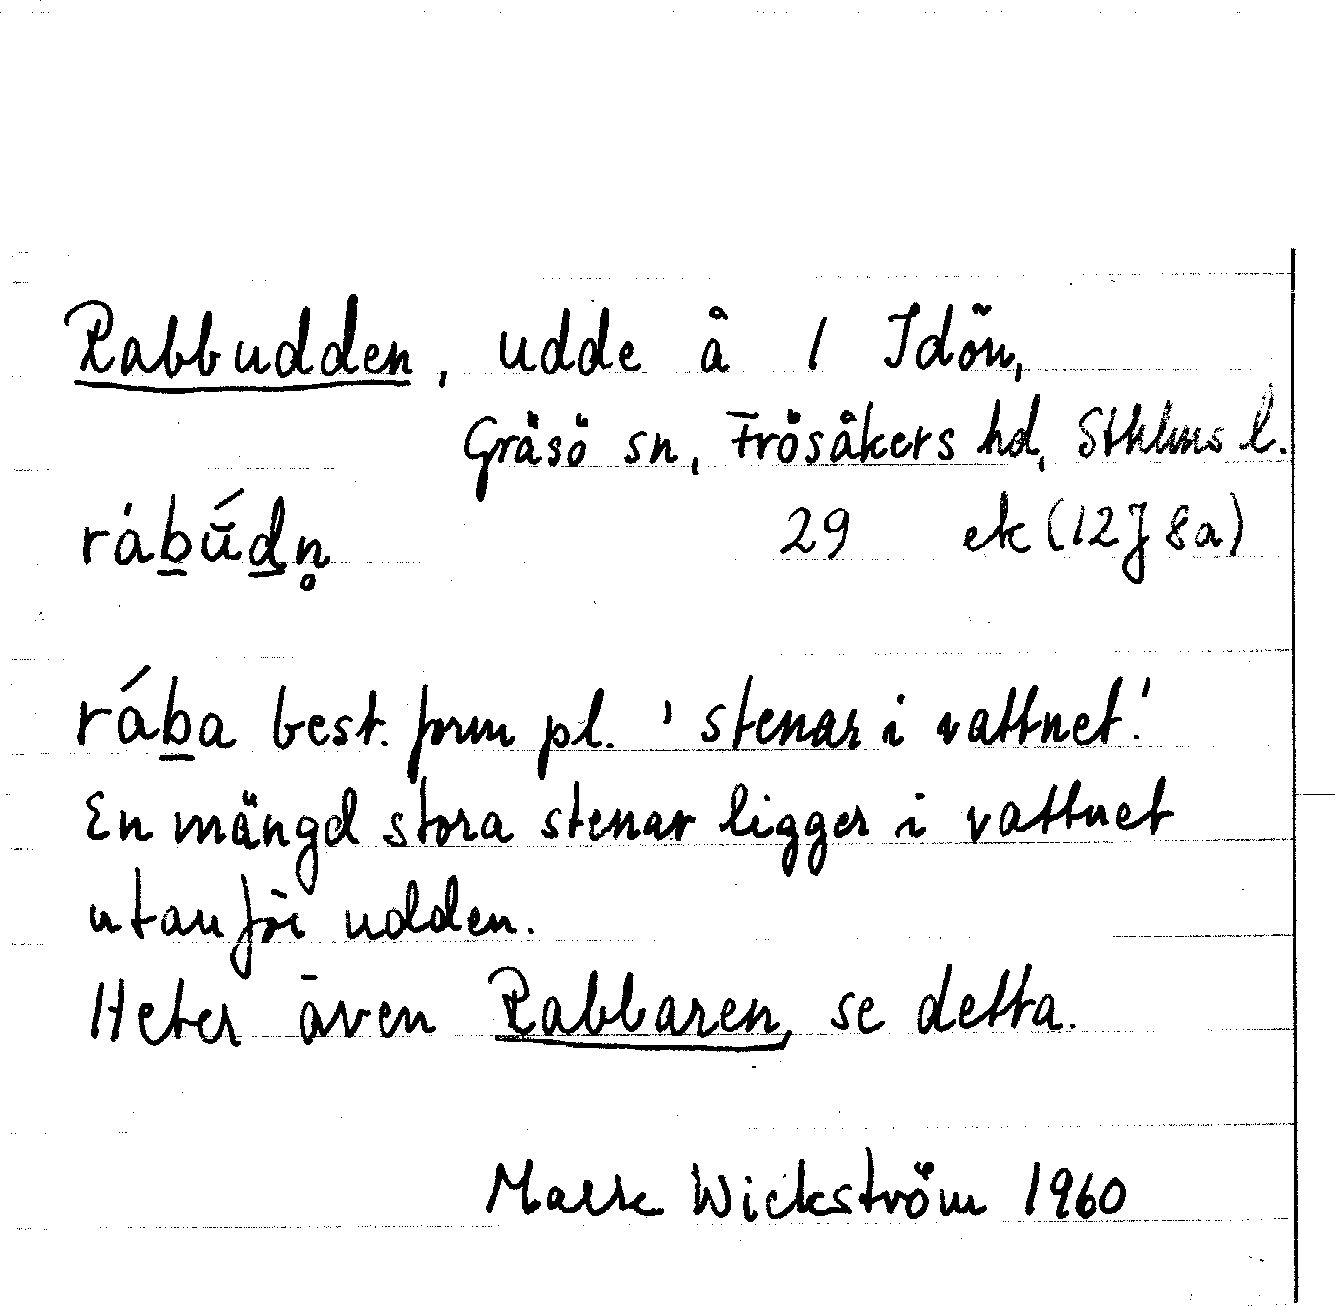 Rabbudden, udde å 1 Idön,
Gräsö sn, Frösåkers hd, Sthlms l.
rábū́dn̥ 29 ek (12J 8a)
rába best. form pl. 'stenar i vattnet'.
En mängd stora stenar ligger i vattnet
utanför udden.
Heter även Rabbaren, se detta.
Wickström 1960